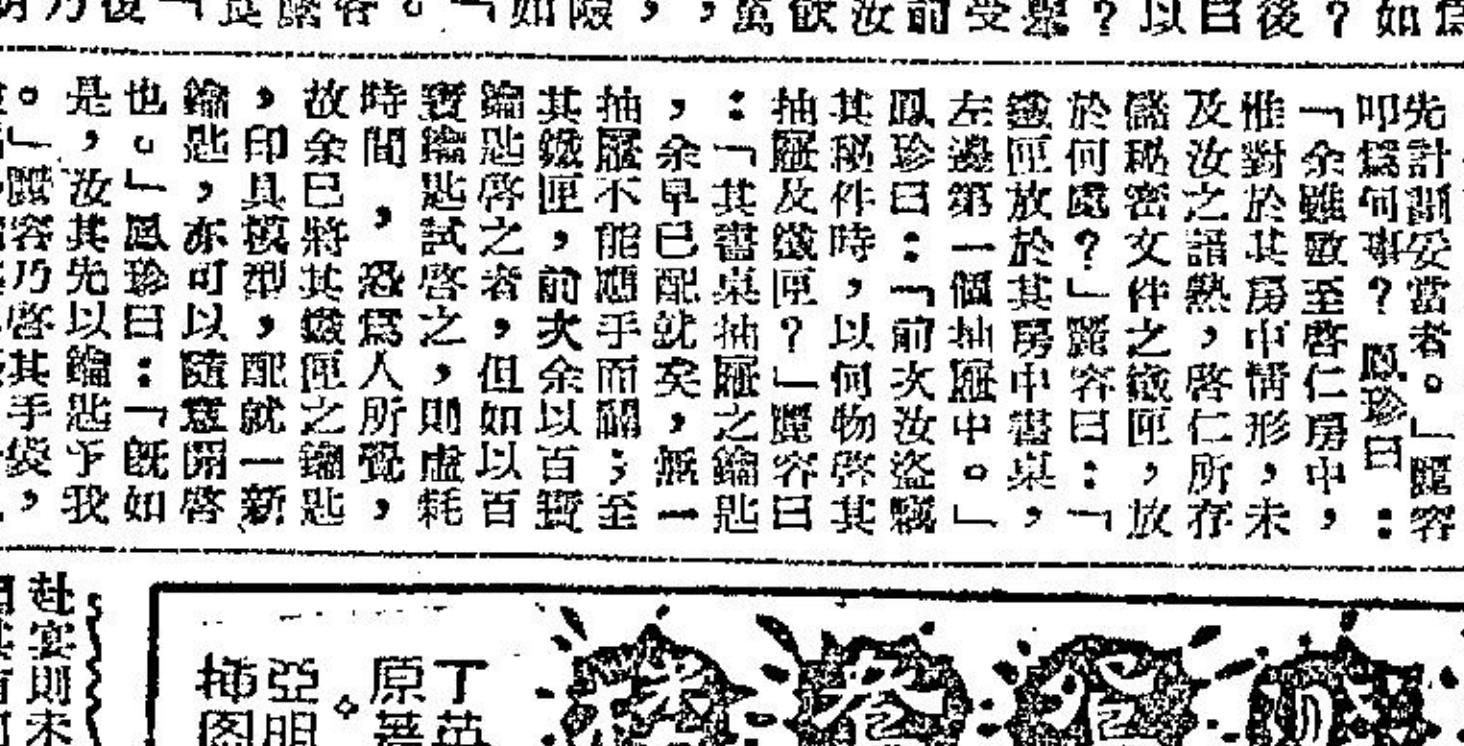 如？後曰以？受前汝飲萬，，險如「。容麗是「後乃
先計劃妥當者。」麗容
叩爲何事？鳳珍曰：
「余雖數至啓仁房中，
惟對於其房中情形，未
及汝之諳熟，啓仁所存
儲秘密文件之鐵匣，放
於何處？」麗容曰：「
鐵匣放於其房中書桌，
左邊第一個抽屜中。」
鳳珍曰：「前次汝盜竊
其秘件時，以何物啓其
抽屜及鐵匣？」麗容曰
：「其書桌抽屜之鑰匙
，余早已配就矣，無一
抽屜不能應手而開；至
其鐵匣，前次余以百寶
鑰匙啓之者，但如以百
寶鑰匙試啓之，則虛耗
時間，恐爲人所覺，
故余已將其鐵匣之鑰匙
，印具模型，配就一新
鑰匙，亦可以隨意開啓
也。」鳳珍曰：「既如
是，汝其先以鑰匙予我
。」麗容乃啓其手袋，
丁英
原著。
亞明
插图
赴宴則未